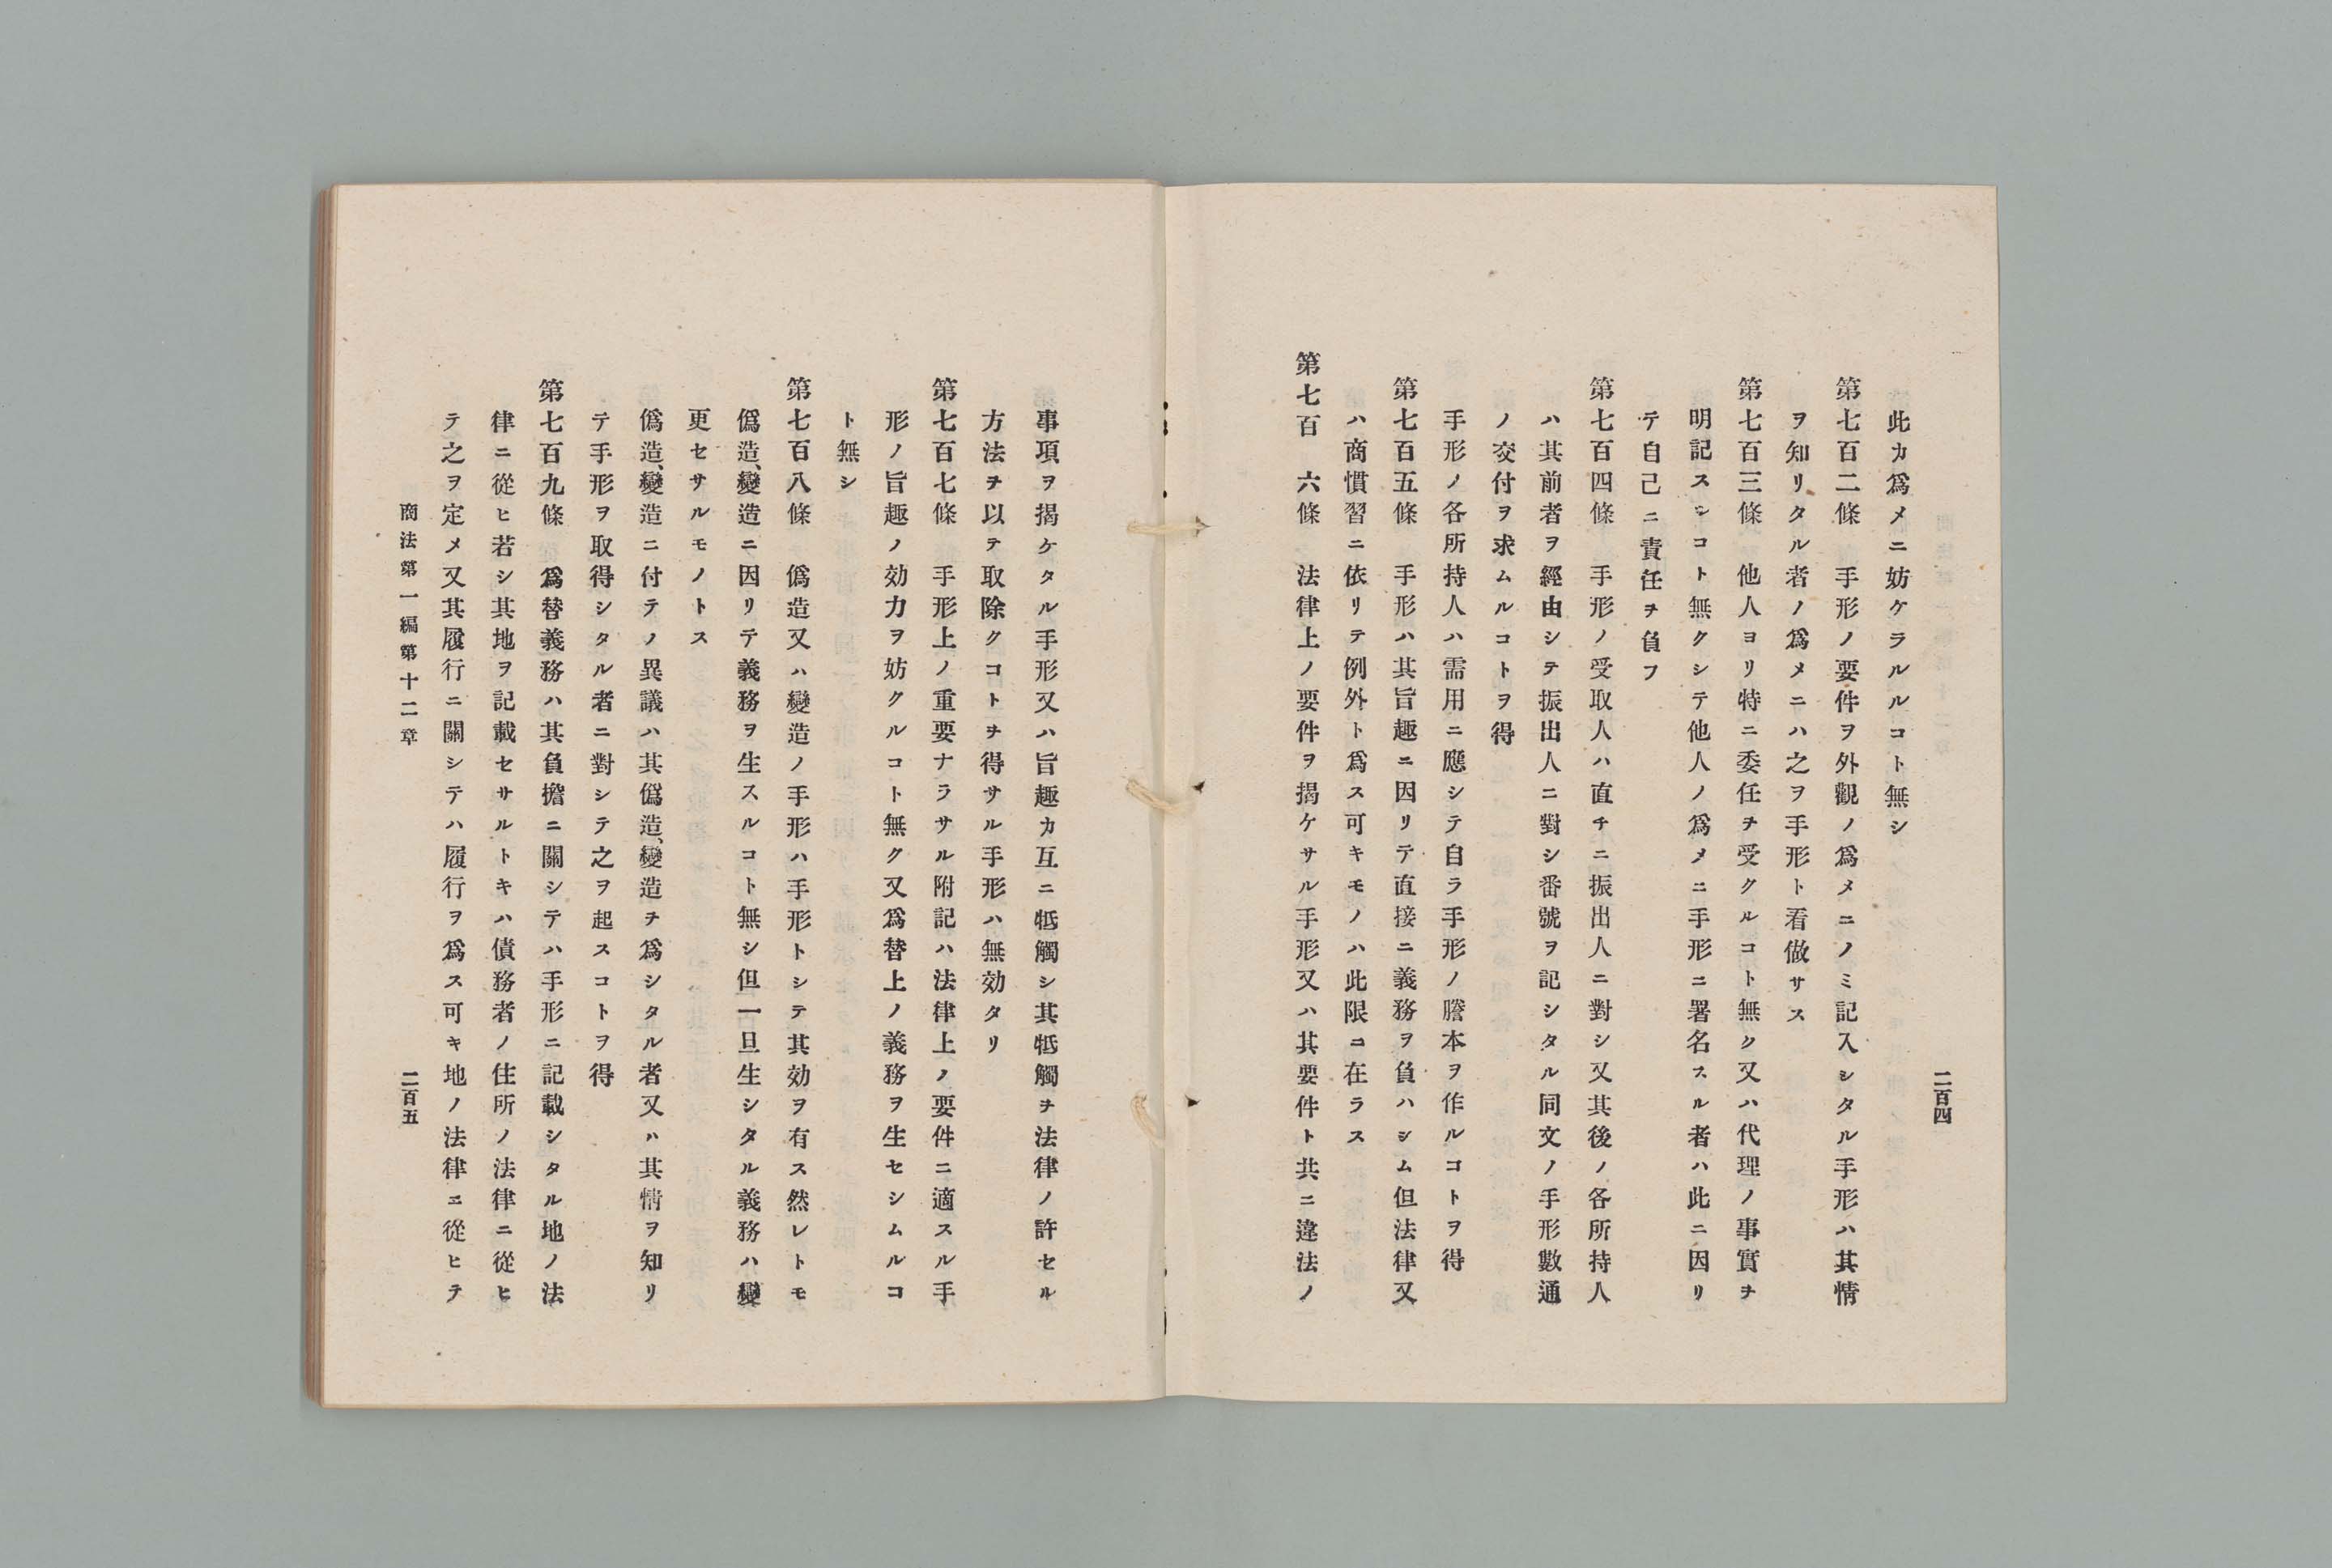 二百四
此カ爲メニ妨ケラルルコト無シ
第七百二條　手形ノ要件ヲ外觀ノ爲メニノミ記入シタル手形ハ其情
ヲ知リタル者ノ爲メニハ之ヲ手形ト看做サス
第七百三條　他人ヨリ特ニ委任ヲ受クルコト無ク又ハ代理ノ事實ヲ
明記スシコト無クシテ他人ノ爲メニ手形ニ署名スル者ハ此ニ因リ
テ自己ニ責任ヲ負フ
第七百四條　手形ノ受取人ハ直チニ振出人ニ對シ又其後ノ各所持人
ハ其前者ヲ經由シテ振出人ニ對シ番號ヲ記シタル同文ノ手形數通
ノ交付ヲ求ムルコトヲ得
手形ノ各所持人ハ需用ニ應シテ自ラ手形ノ謄本ヲ作ルコトヲ得
第七百五條　手形ハ其旨趣ニ因リテ直接ニ義務ヲ負ハシム但法律又
ハ商慣習ニ依リテ例外ト爲ス可キモノハ此限ニ在ラス
第七百六條　法律上ノ要件ヲ揭ケサル手形又ハ其要件ト共ニ違法ノ
事項ヲ揭ケタル手形又ハ旨趣カ互ニ牴觸シ其牴觸ヲ法律ノ許セル
方法ヲ以テ取除クコトヲ得サル手形ハ無効タリ
第七百七條　手形上ノ重要ナラサル附記ハ法律上ノ要件ニ適スル手
形ノ旨趣ノ効力ヲ妨クルコト無ク又爲替上ノ義務ヲ生セシムルコ
ト無シ
第七百八條　僞造又ハ變造ノ手形ハ手形トシテ其効ヲ有ス然レトモ
僞造、變造ニ因リテ義務ヲ生スルコト無シ但一旦生シタル義務ハ變
更セサルモノトス
僞造、變造ニ付テノ異議ハ其僞造、變造ヲ爲シタル者又ハ其情ヲ知リ
テ手形ヲ取得シタル者ニ對シテ之ヲ起スコトヲ得
第七百九條　爲替義務ハ其負擔ニ關シテハ手形ニ記載シタル地ノ法
律ニ從ヒ若シ其地ヲ記載セサルトキハ債務者ノ住所ノ法律ニ從ヒ
テ之ヲ定メ又其履行ニ關シテハ履行ヲ爲ス可キ地ノ法律ニ從ヒテ
商法第一編第十二章
二百五